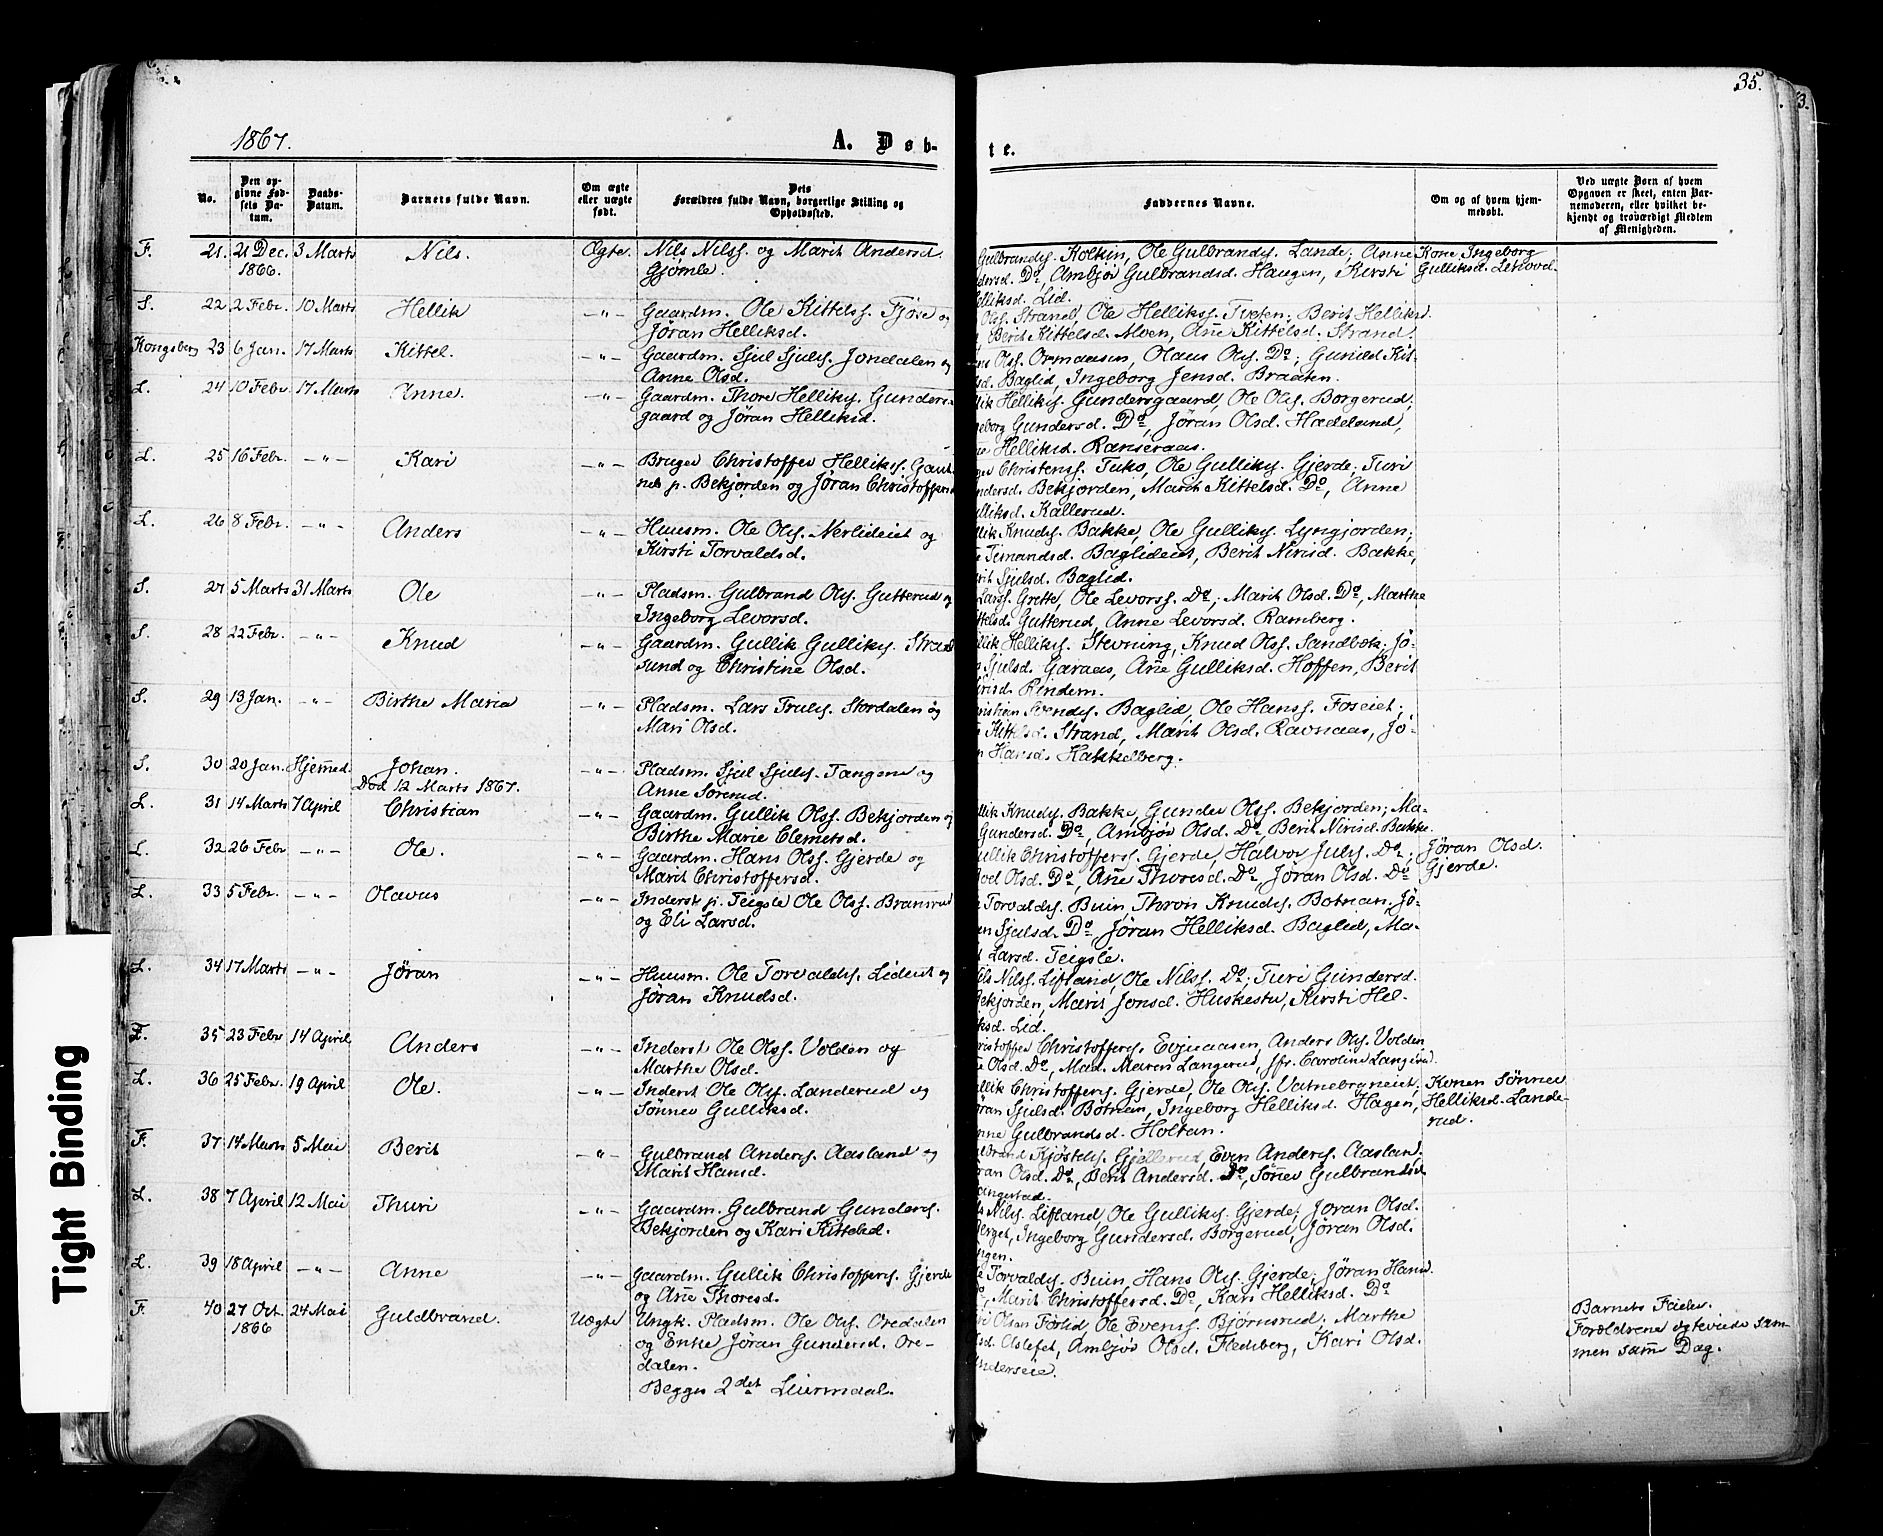 35.
1867.
A. Døb-
te.
No.
Den op-
givne Fød-
sels Da-
tum.
Daabs-
Datum.
Barnets fulde Navn.
Om ægte
eller uægte
født.
Dets
Forældres fulde Navn, borgerlige Stilling og
Opholdssted.
Faddernes Navne.
Om og af hvem hjem-
medøbt.
Ved uægte Børn af hvem
Opgaven er skeet, enten Bar-
nemoderen, eller hvilket be-
kjendt og troværdigt Medlem
af Menigheden.
F. 21. 21 Dec. 1866. 3 Marts Nils. Ægte. Nils Nilss. og Marit Andersd.
Gjömle.
Gulbrands. Holtin, Ole Gulbrands. Lande; Anne
dersd. Do, Ambjør Gulbrandsd. Haugen, Kirsti
elliksd. Lid.
Kone Ingeborg
Gulliksd.
S. 22 2 Febr. 10 Marts Hellik -"- Gaardm. Ole Kittelss. Fjøse og
Jöran Helliksd.
Olss. Strand, Ole Helliks. Tveten; Berit Helliksd.
Berit Kittelsd. Moen, Ane Kittelsd. Strand.
Kongsberg 23 6 Jan. 17 Marts Kittel. -"- Gaardm. Sjul Sjuls. Jondalen og
Anne Olsd.
Olss. Ormaasen, Olaus Ols. Do; Gunild Kit-
sd. Baglid, Ingeborg Jensd. Braaten.
L. 24 10 Febr. 17 Marts Anne. -"- Gaardm. Thore Helliks. Gunders-
gaard og Jøran Helliksd.
lik Helliks. Gundersgaard, Ole Ols. Borgerud;
geborg Gundersd. Do, Jøran Olsd. Hadeland,
Helliksd. Ranseraas.
L. 25 16 Febr. -"- Kari -"- Bruger Christoffer Helliks.
p. Bekjorden og Jøran Christoffersd.
Christenss. Tuko, Ole Gulliks. Gjerde; Turi
undersd. Bekjorden, Marit Kittelsd. Do, Anne
lliksd. Kallerud.
L. 26 8 Febr. -"- Anders -"- Huusm. Ole Ols. Nerlideiet og
Kirsti Torvaldsd.
llik Knuds. Bakke, Ole Gulliks. Lyngjorden;
Temandsd. Baglideiet, Berit Nirisd. Bakke,
rit Sjulsd. Baglid.
S. 27 5 Marts 31 Marts Ole -"- Pladsm. Gulbrand Ols. Gutterud og
Ingeborg Levorsd.
Larss. Grette, Ole Levorss. Do; Marit Olsd. Do, Marthe
ttelsd. Gutterud, Anne Levorsd. Ramberg.
S. 28 22 Febr. -"- Knud -"- Gaardm. Gullik Gulliks. Strand
sund og Christine Olsd.
llik Helliks. Stevning, Knud Olss. Sandbæk; Jö-
Sjulsd. Garaas, Ane Gulliksd. Hoffen, Berit
irisd. Rindem.
S. 29 13 Jan. -"- Birthe Maria -"- Pladsm. Lars Truls. Stordalen og
Mari Olsd.
ristian Svends. Baglid, Ole Hanss. Foseiet;
Kittelsd. Strand, Marit Olsd. Ravnaas, Jö-
n Hansd. Hakkelberg.
S. 30 20 Jan. Hjemmed. Johan.
Död 12 Marts 1867. -"- Pladsm. Sjul Sjuls. Tangene og
Anne Sörensd.
L. 31 14 Marts 7 April Christian -"- Gaardm. Gullik Olss. Bekjorden og
Birthe Marie Clemetsd.
llik Knuds. Bakke, Gunder Olss. Bekjorden; Ma-
Gundersd. Do, Ambjør Olsd. Do Berit Nirisd. Bakke.
L. 32 26 Febr -"- Ole. -"- Gaardm. Hans Olss. Gjerde og
Marit Christoffersd.
ullik Christofferss. Gjerde, Halvor Juls. Do;
Olsd. Do, Ane Thoresd. Do, Jøran Olsd. Do
Jøran Olsd.
Gjerde.
L. 33 5 Febr. -"- Olavus -"- Inderst p. Teigsle Ole Olss. Bransrud
og Eli Larsd.
Torvalds. Buin, Thron Knuds. Botnan; Jö-
an Sjulsd. Do, Jøran Helliksd. Baglid, Ma-
t Larsd. Teigsle.
L. 34 17 Marts -"- Jøran -"- Huusm. Ole Torvalds. Lideiet og
Jøran Knudsd.
ils Nilss. Lifland, Ole Nilss. Do; Turi Gundersd.
Bekjorden, Marit Jonsd. Huskestu, Kirsti Hel-
iksd. Lid.
F. 35 23 Febr 14 April Anders -"- Inderst Ole Olss. Volden og
Marthe Olsd.
ristoffer Christoffers. Evjuaasen, Anders Ols. Volden
Olsd. Do, Mad. Maren Langerud, Jfr. Caroline Langerud.
L. 36 25 Febr. 19 April Ole. -"- Inderst Ole Olss. Landerud og
Sønnev Gulliksd.
llik Christoffers. Gjerde, Ole Ols. Vatnebryneiet;
öran Sjulsd. Botnan, Ingeborg Helliksd. Hagen,
nne Gulbrandsd. Holtan.
Konen Sønnev
Helliksd. Lande-
rud.
F. 37 14 Marts 5 Mai Berit -"- Gulbrand Anders. Aasland og
Marit Hansd.
ulbrand Kjøstels. Gjellerud, Even Anders. Aasland;
øran Olsd. Do, Berit Andersd. Do, Sønnev Gulbrandsd
angestad.
L. 38 7 April 12 Mai Thuri -"- Gaardm. Gulbrand Gunders.
Bekjorden og Kari Kittelsd.
Nils. Lifland, Ole Gulliks. Gjerde; Jøran Olsd.
Berget, Ingeborg Gundersd. Borgerud, Jøran Olsd.
ngen.
L. 39 18 April -"- Anne -"- Gaardm. Gullik Christoffers. Gjerde
og Ane Thoresd.
Torvalds. Buin, Hans Ols. Gjerde; Jøran Hansd.
Do, Marit Christoffersd. Do, Kari Helliksd. Do
F. 40 27 Oct. 1866 24 Mai Guldbrand. Uægte Ungk. Pladsm. Ole Ols. Oredalen
og Enke Jøran Gundersd. Ore-
dalen.
Begges 2det Leiermaal.
Olsen Forlid, Ole Evenss. Bjørnsrud; Marthe
lsd. Aslefet, Ambjør Olsd. Flesberg, Kari Olsd.
underseie.
Barnets Fader.
Forældrene egteviede sam-
men samme Dag.
Tight Binding